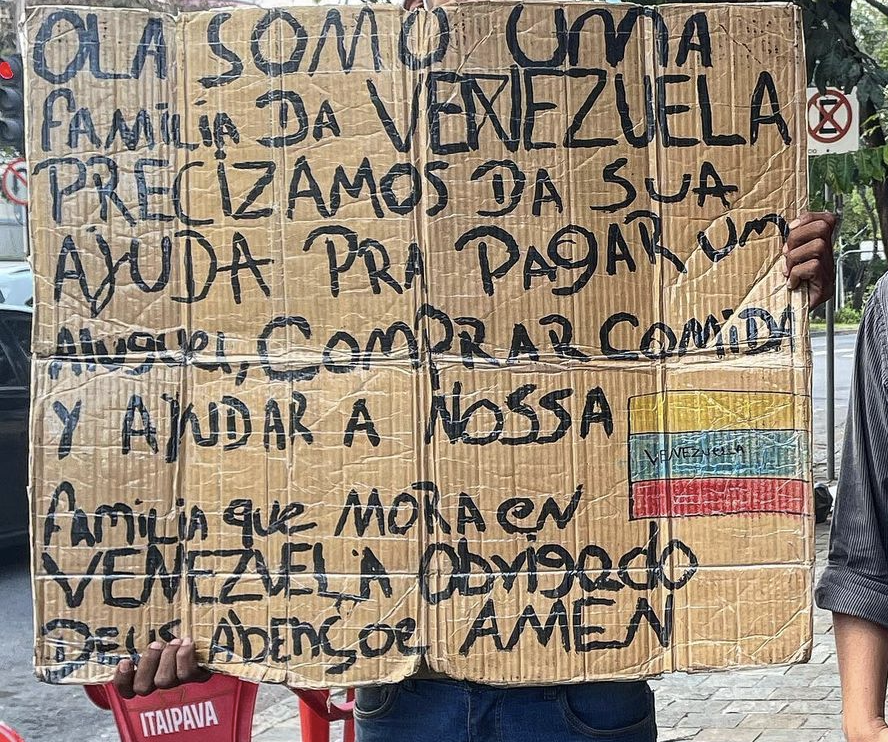 OLA SOMO UMA
familia DA VENEZUELA
PRECIZAMOS DA SUA
AJUDA PRA PAGAR um
Aluguel, COMPRAR COMIDA
Y AJUDAR A NOSSA
VENEZUELA
familia que MORA en
VENEZUELA Obrigado
DEUS Abençoe AMEN
ITAIPAVA